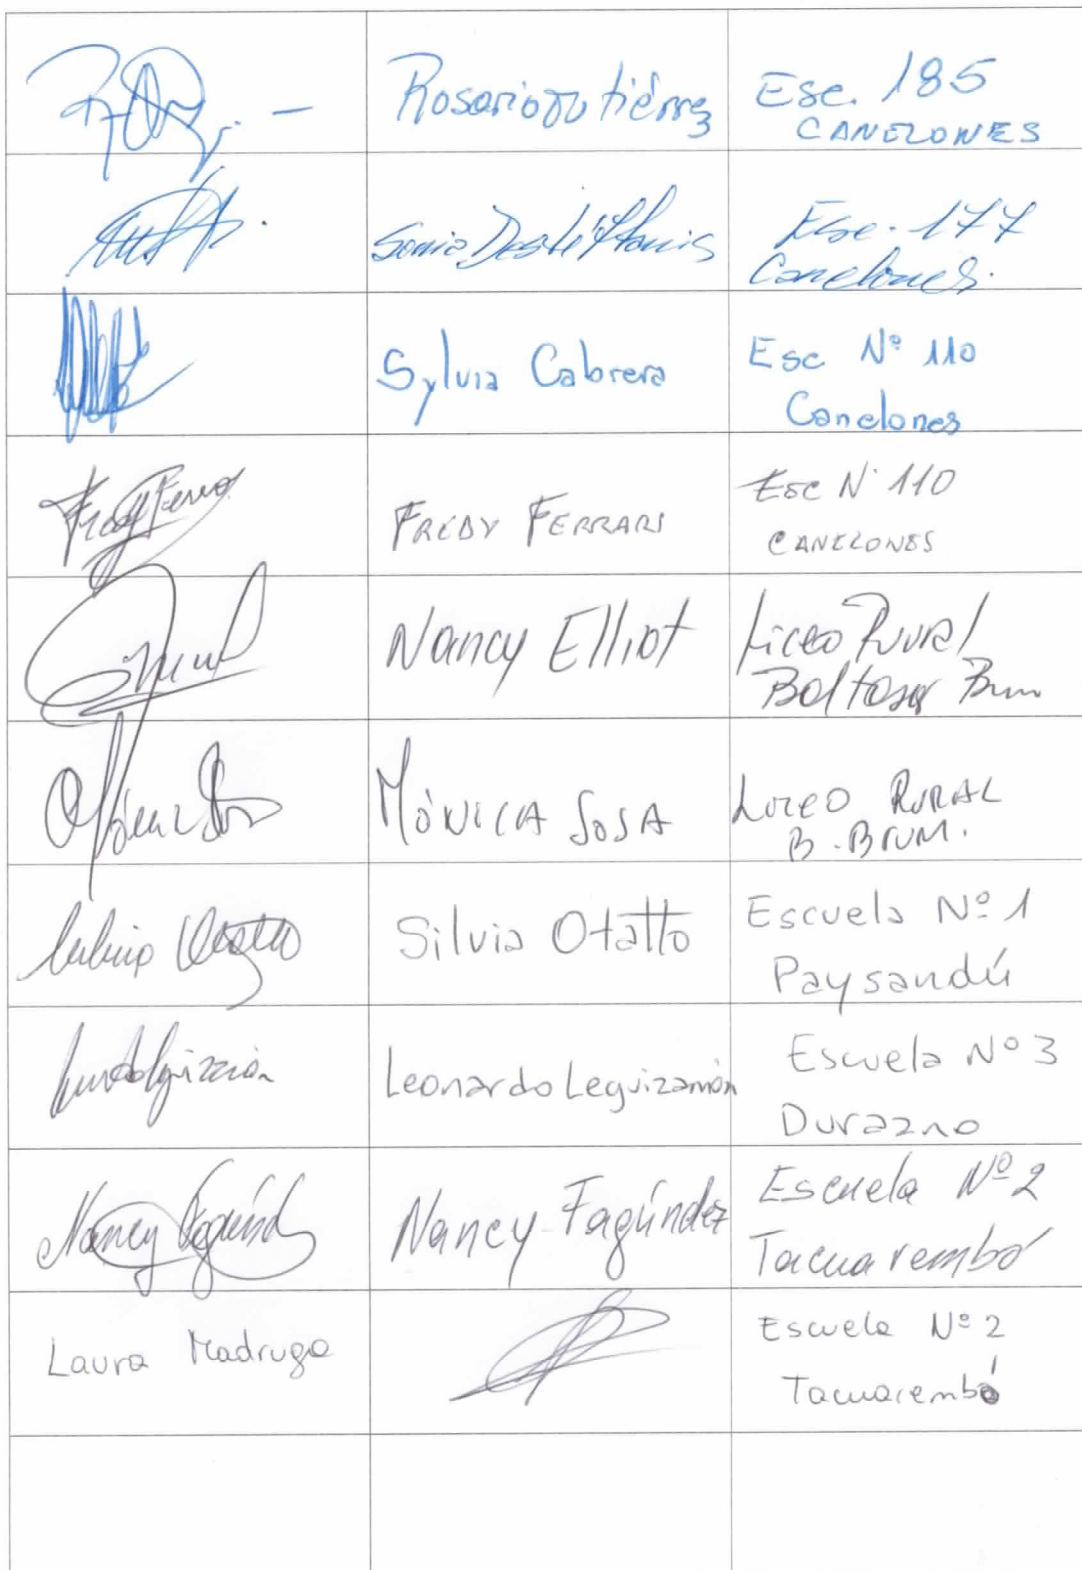 Rosario Gutiérrez
Esc. 185
CANELONES
Sonia
Esc. 177
Canelones.
Sylvia Cabrera
Esc Nº 110
Canelones
Fredy Ferrari
FREDY FERRARI
Esc Nº 110
CANELONES
Nancy Elliot
Liceo Rural
Baltasar Brum
MÓNICA SOSA
LICEO RURAL
B. BRUM.
Silvia Otatto
Escuela Nº 1
Paysandú
Leonardo Leguizamón
Escuela Nº 3
Durazno
Nancy Fagúnd
Nancy Fagúndez
Escuela Nº 2
Tacuarembó
Laura Madruga
Escuela Nº 2
Tacuarembó